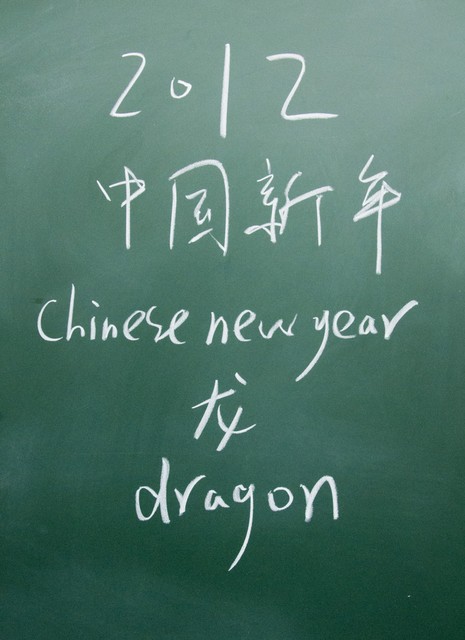 2012
中国新年
Chinese new year
龙
dragon